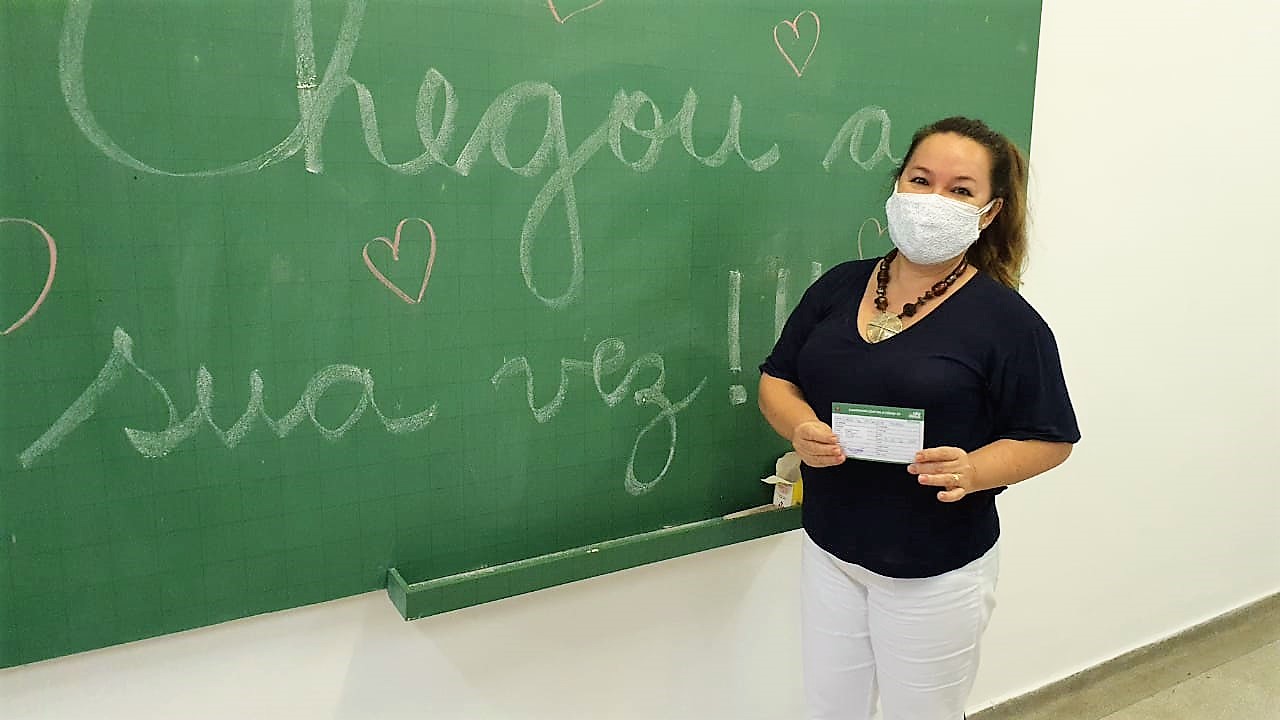 Chegou a
sua vez!!!